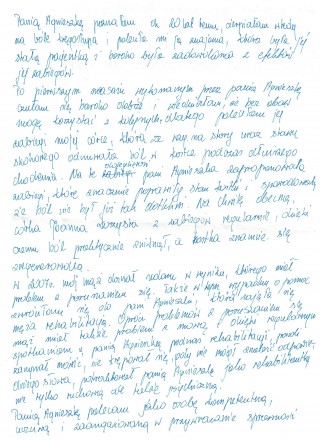 Panią Agnieszkę poznałam ok 20 lat temu, cierpiałam wtedy
na bóle kręgosłupa i poleciła mi ją znajoma, która była jej
stałą pacjentką i bardzo była zadowolona z efektów
jej zabiegów.
Po pierwszym masażu wykonanym przez panią Agnieszkę
czułam się bardzo dobrze i wiedziałam, że bez obaw
mogę korzystać z kolejnych, dlatego poleciłam jej
zabiegi mojej córce, która ze względu na stary uraz stawu
skokowego odczuwała ból w kostce podczas dłuższego
chodzenia. Na te dolegliwości pani Agnieszka zaproponowała
zabiegi, które znacznie poprawiły stan kostki i spowodowały,
że ból nie był już tak dotkliwy. Na chwilę obecną,
córka Joanna korzysta z zabiegów regularnie, dzięki
czemu ból praktycznie zniknął, a kostka znacznie się
zregenerowała.
W 2007r. mój mąż doznał udaru w wyniku, którego miał
problem z poruszaniem się. Także w tym wypadku o pomoc
zwróciłam się do pani Agnieszki, która zajęła się
męża rehabilitacją. Oprócz problemów z poruszaniem się
mąż miał także problem z mową i dzięki regularnym
spotkaniom z panią Agnieszką podczas rehabilitacji, pomału
zaczynał mówić, nie krępował się, gdy nie mógł znaleźć odpowied-
niego słowa, potraktował panią Agnieszkę jako rehabilitantkę
nie tylko ruchową ale także psychiczną.
Panią Agnieszkę polecam jako osobę kompetentną,
uczciwą i zaangażowaną w przywracanie sprawności